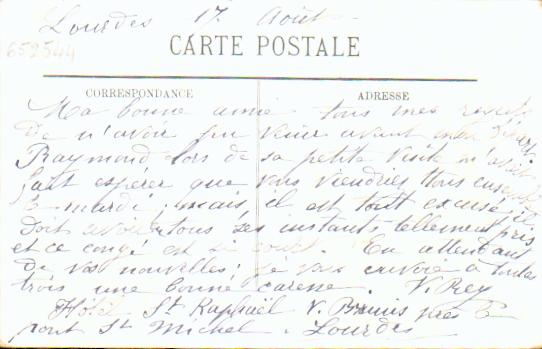 Lourdes 17 Août
652544
CARTE POSTALE
CORRESPONDANCE ADRESSE
Ma bonne amie tous mes regrets
de n'avoir pu venir avant mon départ.
Raymond lors de sa petite visite m'avait
fait espérer que vous viendriez tous ensemble
le mardi; mais il est tout excusé, il
doit avoir tous ses instants tellement pris
et ce congé est si court. En attendant
de vos nouvelles, je vous envoie à toutes
trois une bonne caresse. V. Rey
Hôtel St Raphaël V. près le
pont St Michel. Lourdes